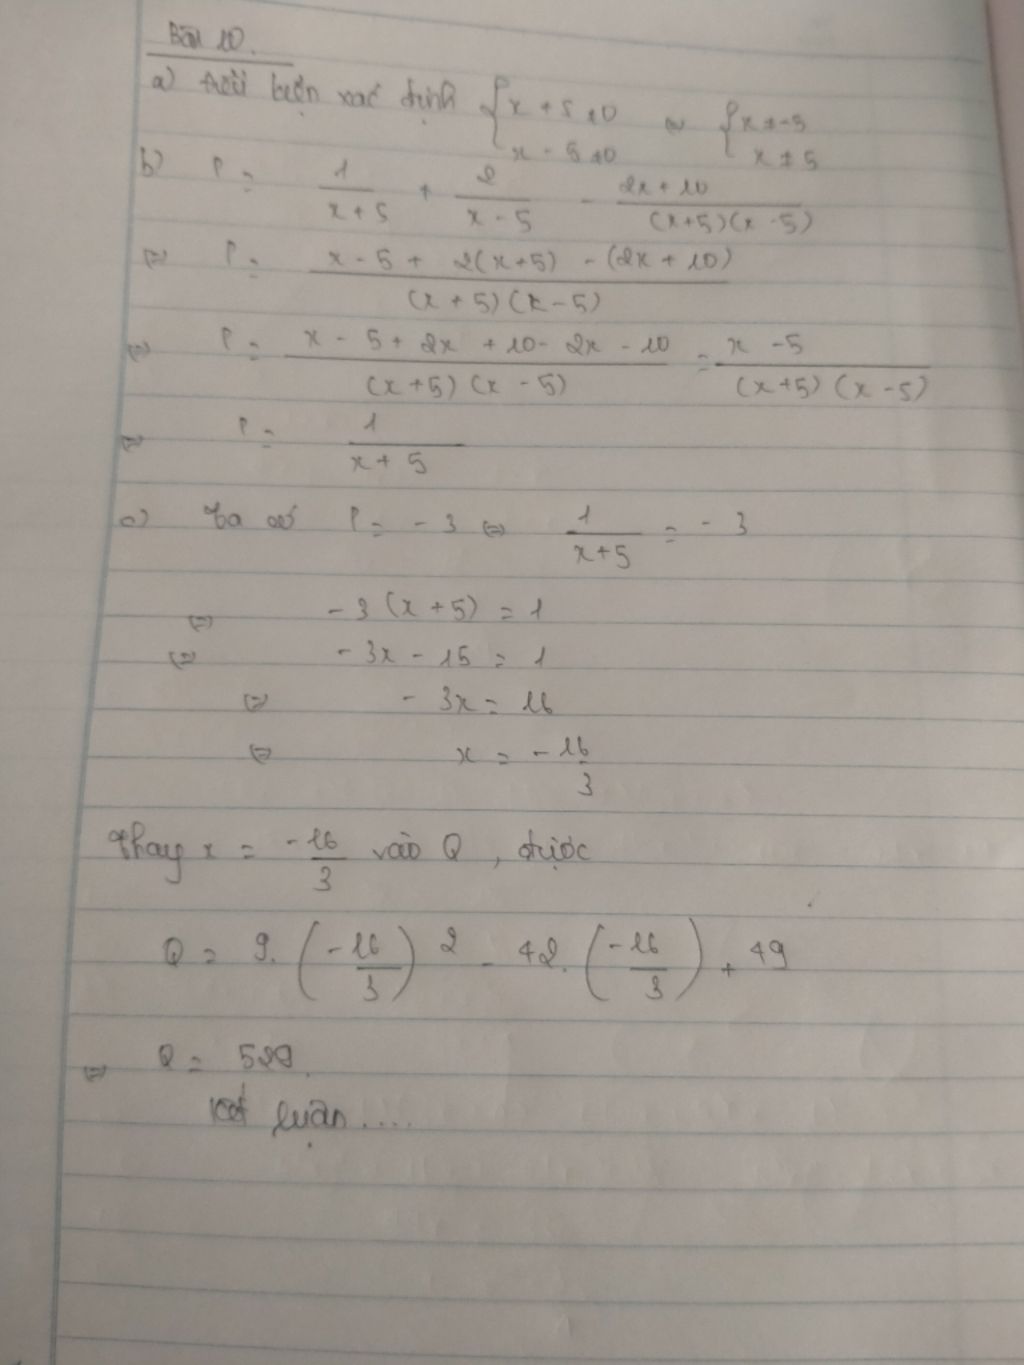 Bài 10.
a) Điều kiện xác định { x + 5 ≠ 0 ⇔ { x ≠ -5
x - 5 ≠ 0 x ≠ 5
b) P = 1/(x + 5) + 2/(x - 5) - (2x + 10)/((x+5)(x-5))
⇔ P = (x - 5 + 2(x+5) - (2x + 10))/((x+5)(x-5))
⇔ P = (x - 5 + 2x + 10 - 2x - 10)/((x+5)(x-5)) = (x - 5)/((x+5)(x-5))
⇔ P = 1/(x + 5)
c) Ta có P = - 3 ⇔ 1/(x+5) = - 3
⇔ - 3(x + 5) = 1
⇔ - 3x - 15 = 1
⇔ - 3x = 16
⇔ x = - 16/3
Thay x = - 16/3 vào Q, được
Q = 9. (- 16/3) 2 - 42. (- 16/3) + 49
⇔ Q = 529.
Kết luận....